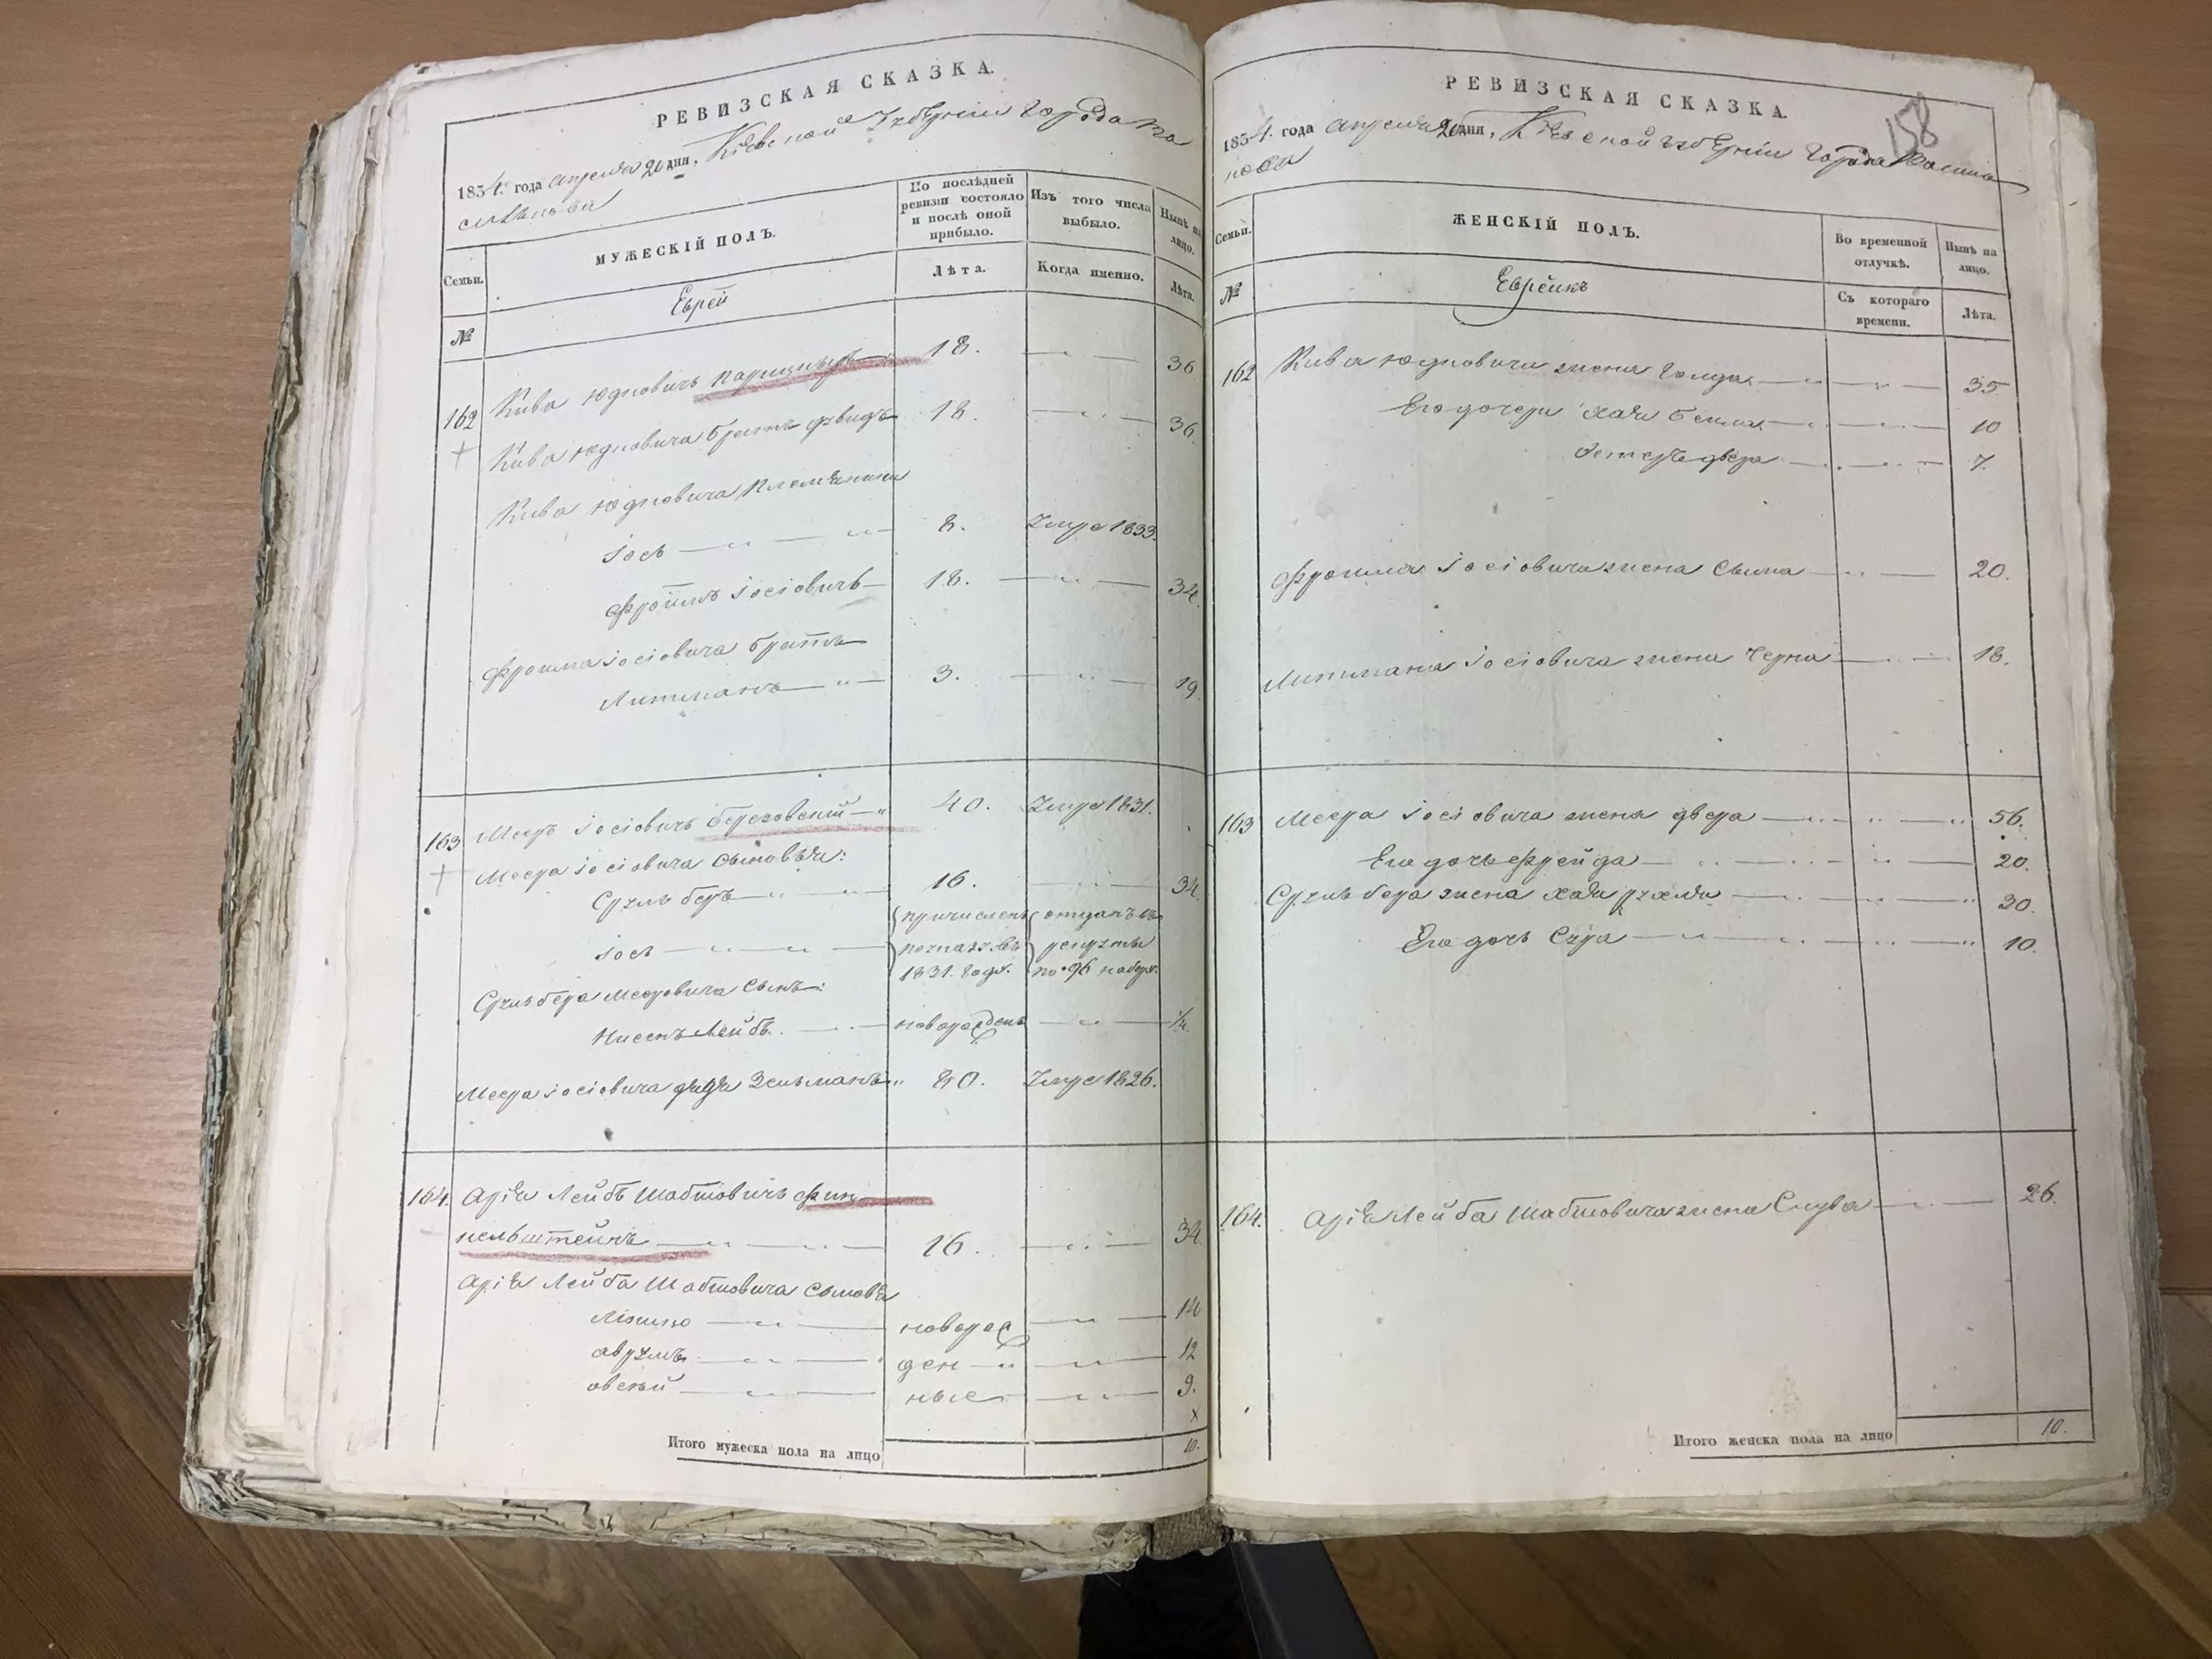 РЕВИЗСКАЯ СКАЗКА.
1834. года апреля 20 дня, Кіевской Губерніи города Ва
силькова
Семьи.
МУЖЕСКІЙ ПОЛЪ.
По послѣдней ревизіи состояло и послѣ оной прибыло.
Изъ того числа выбыло.
Нынѣ на лицо.
№
Еврей
Лѣта.
Когда именно.
Лѣта.
162
Кива Юдковичъ 18. 36
Кива Юдковича братъ 18. 36.
Кива Юдковича племянники
Іось 8. Умре 1833.
Фроимъ Іосіовичъ 18. 34.
Фроима Іосіовича братъ
Литманъ 3. 19.
163
Мееръ Іосіовичъ Березовскій 40. Умре 1831.
Меера Іосіовича сыновья:
Сруль беръ 16. 34.
Іось причисленъ отданъ въ
по указу въ рекруты
1831. году. по 96 набору.
Сруль бера Мееровича сынъ:
Нисенъ Лейбъ. новорожденъ 1/4.
Меера Іосіовича дядя Зельманъ 80. Умре 1826.
164.
Арія Лейбъ Шабшовичъ Фин
кельштейнъ 16. 34.
Арія Лейба Шабшовича сыновья
Мошко новорож 14
Аврумъ ден 12
Овсей ные 9.
x
Итого мужеска пола на лицо 10.
158
РЕВИЗСКАЯ СКАЗКА.
1834. года апреля 20 дня, Кіевской Губерніи города Василь
кова
Семьи.
ЖЕНСКІЙ ПОЛЪ.
Во временной отлучкѣ.
Нынѣ на лицо.
№
Еврейкъ
Съ котораго времени.
Лѣта.
162
Кива Юдковича жена Голда 35
Его дочери Хая Бейла 10
Эстеръ двера 7.
Фроима Іосіовича жена Сима 20.
Литмана Іосіовича жена Черна 18.
163
Меера Іосіовича жена двера 56.
Его дочь Фрейда 20.
Сруль бера жена Хая Рухля 30.
Его дочь Сура 10.
164.
Арія Лейба Шабшовича жена 26.
Итого женска пола на лицо 10.